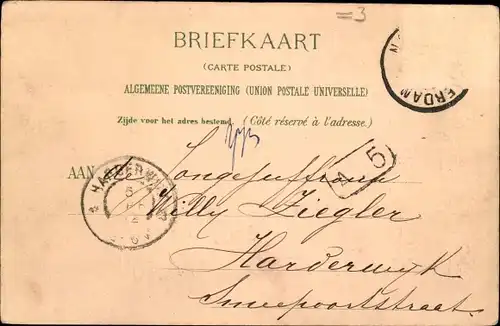 =3
BRIEFKAART
(CARTE POSTALE)
ALGEMEENE POSTVEREENIGING (UNION POSTALE UNIVERSELLE)
Zijde voor het adres bestemd. (Côté réservé à l'adresse.)
AAN Jongejuffrouw
Willy Ziegler
Harderwijk
Smeepoortstraat.
HARDERWIJK
5
ERDAM